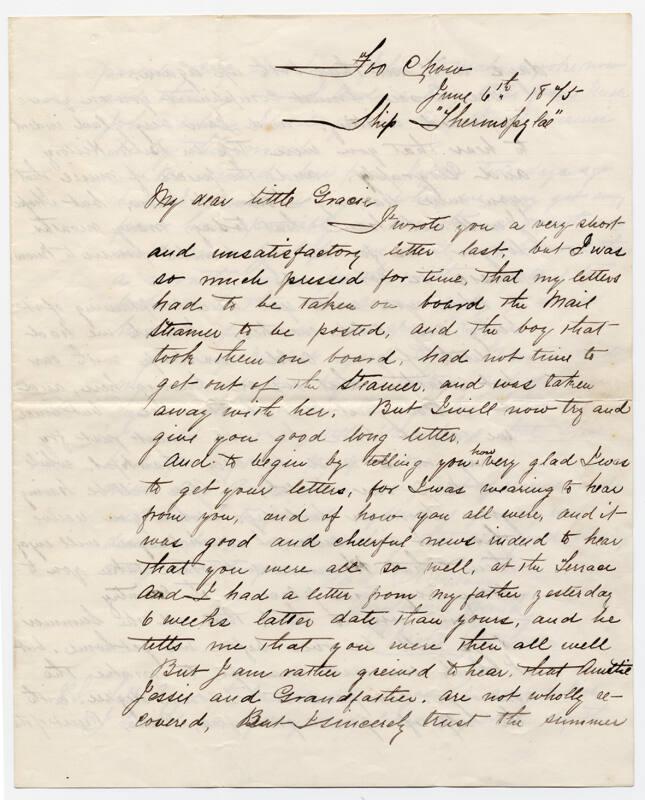 Foo Chow
June 6th. 1875
Ship "Thermopylæ"
My dear little Gracie
I wrote you a very short
and unsatisfactory letter last, but I was
so much pressed for time, that my letters
had to be taken on board the Mail
Steamer to be posted, and the boy that
took them on board, had not time to
get out of the Steamer, and was taken
away with her. But I will now try and
give you good long letter.
And to begin by telling you how very glad I was
to get your letters, for I was wearing to hear
from you, and of how you all were, and it
was good and cheerful news indeed to hear
that you were all so well, at the Terrace
And I had a letter from my father yesterday
6 weeks latter date than yours, and he
tells me that you were then all well
But I am rather greived to hear, that Auntie
Jessie and Grandfather, are not wholly re-
covered, But I sincerely trust the summer